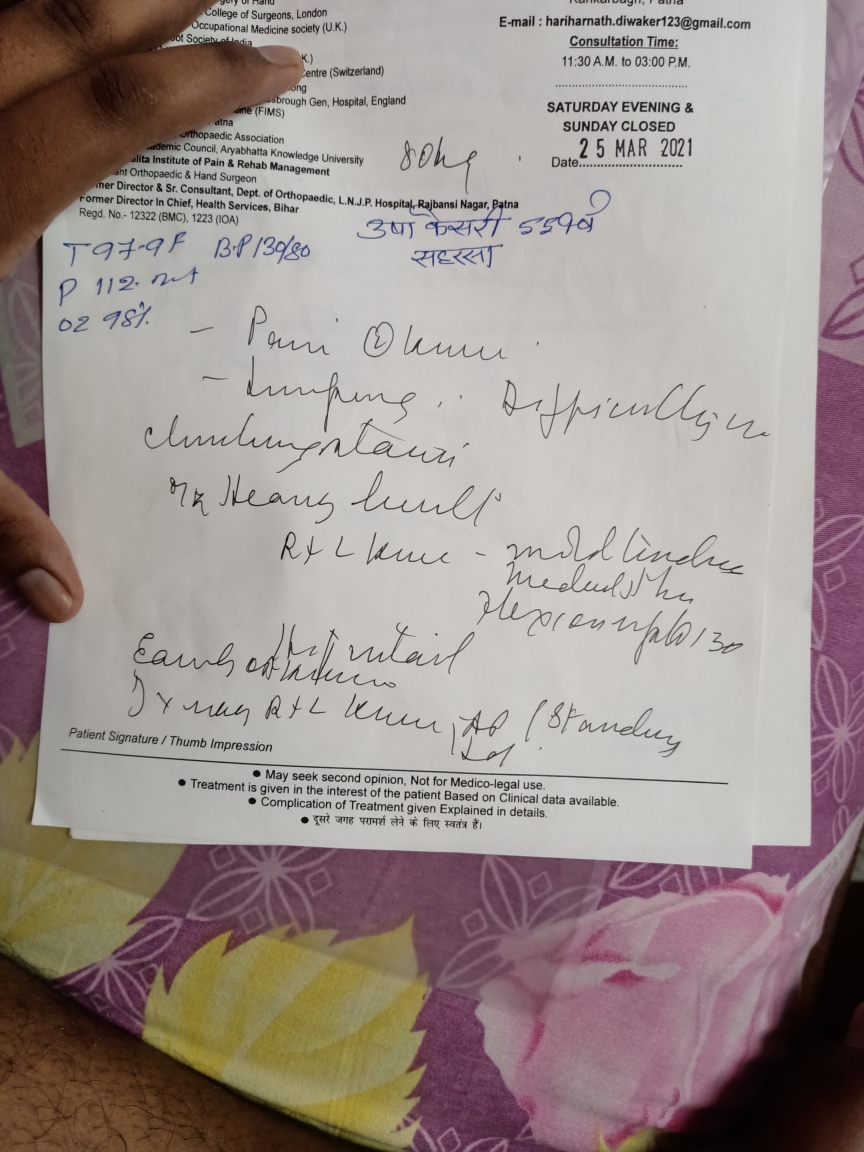 College of Surgeons, London
Occupational Medicine society (U.K.)
Society of India
K.)
Centre (Switzerland)
ong
sbrough Gen, Hospital, England
ine (FIMS)
atna
Orthopaedic Association
ademic Council, Aryabhatta Knowledge University
alita Institute of Pain & Rehab Management
ant Orthopaedic & Hand Surgeon
mer Director & Sr. Consultant, Dept. of Orthopaedic, L.N.J.P. Hospital, Rajbansi Nagar, Patna
Former Director In Chief, Health Services, Bihar
Regd. No.- 12322 (BMC), 1223 (IOA)
Kankarbagh, Patna
E-mail : hariharnath.diwaker123@gmail.com
Consultation Time:
11:30 A.M. to 03:00 P.M.
SATURDAY EVENING &
SUNDAY CLOSED
Date 25 MAR 2021
80kg
उषा केसरी 55
सहरसा
T 97.9F BP 130/80
P 112
O2 98%
- Pain
- Difficulty in
Heavy built
R + L knee - mild
130
X-ray R + L knee AP (Standing
Patient Signature / Thumb Impression
● May seek second opinion, Not for Medico-legal use.
● Treatment is given in the interest of the patient Based on Clinical data available.
● Complication of Treatment given Explained in details.
● दूसरे जगह परामर्श लेने के लिए स्वतंत्र हैं।